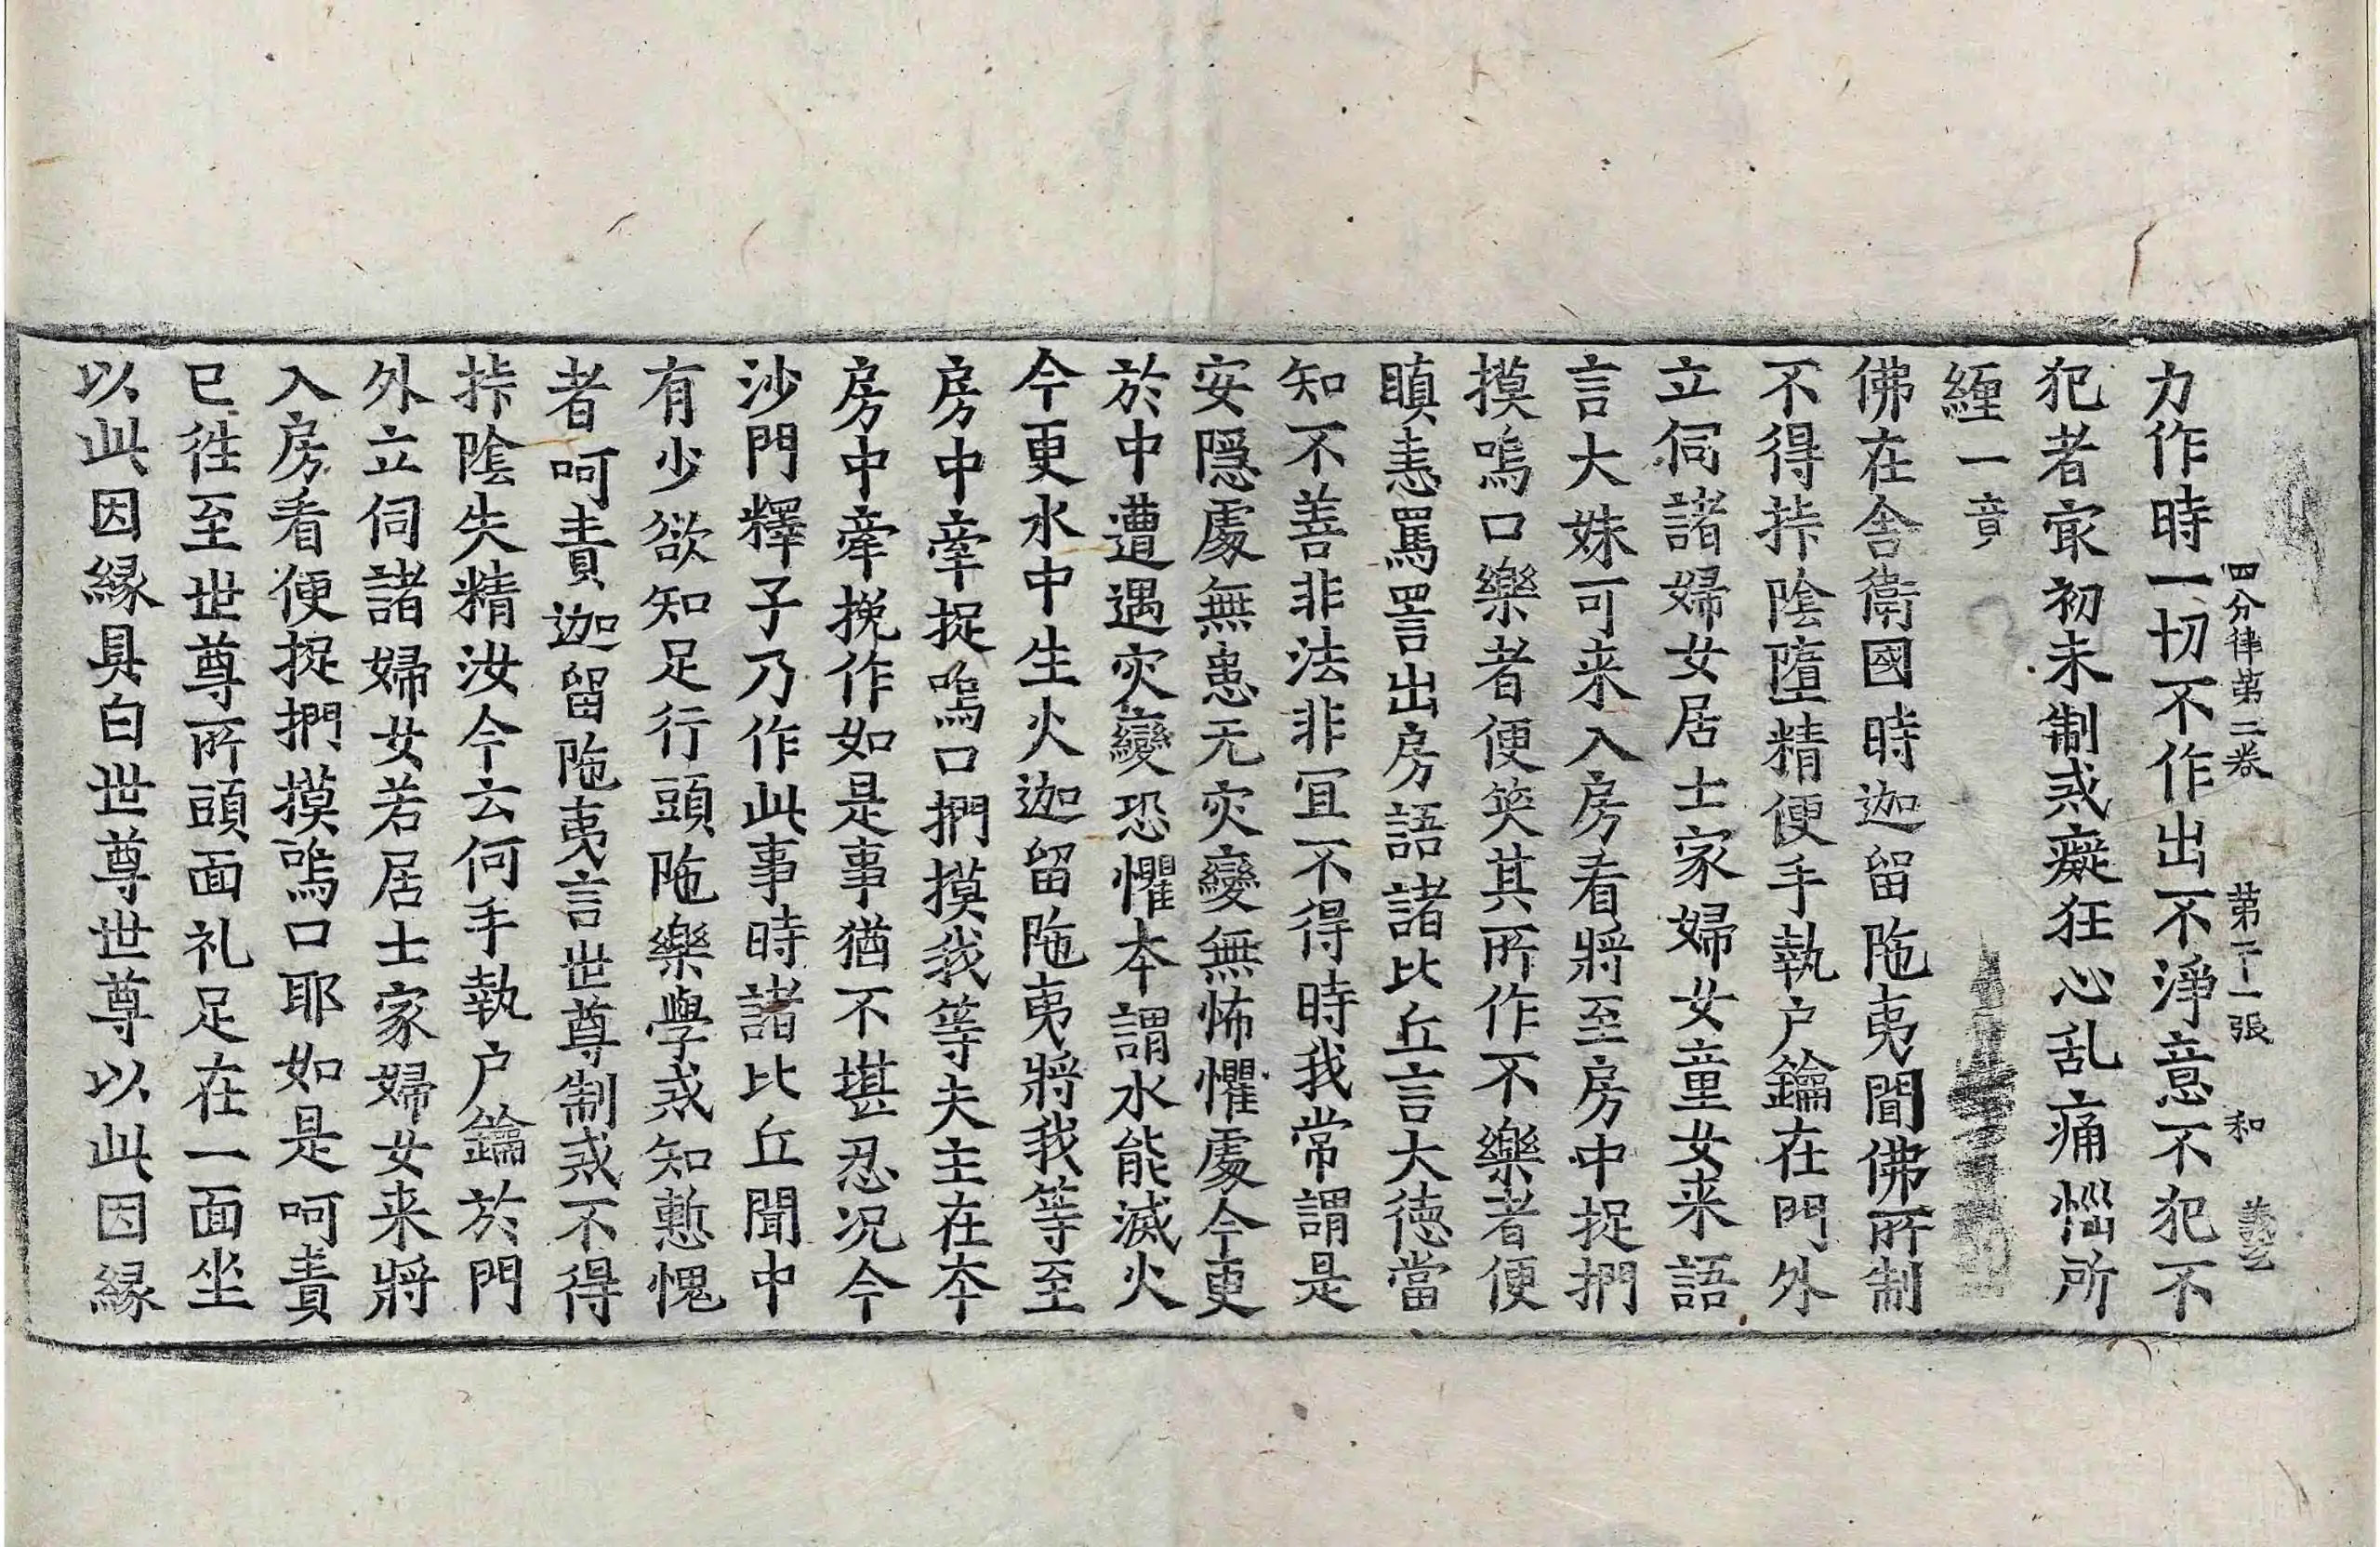 四分律第二卷 第二十一張 和
力作時一切不作出不淨意不犯不
犯者㝡初未制戒癡狂心乱痛惱所
纏一竟
佛在舍衛國時迦留陁夷聞佛所制
不得挊陰墮精便手執户鑰在門外
立伺諸婦女居士家婦女童女来語
言大妹可来入房看將至房中捉捫
摸嗚口樂者便笑其所作不樂者便
瞋恚罵詈出房語諸比丘言大德當
知不善非法非冝不得時我常謂是
安隱處無患无灾變無怖懼處今更
於中遭遇灾變恐懼本謂水能滅火
今更水中生火迦留陁夷將我等至
房中牽捉嗚口捫摸我等夫主在本
房中牽挽作如是事猶不堪忍况今
沙門釋子乃作此事時諸比丘聞中
有少欲知足行頭陁樂學戒知慙愧
者呵責迦留陁夷言世尊制戒不得
挊陰失精汝今云何手執户鑰於門
外立伺諸婦女若居士家婦女来將
入房看便捉捫摸嗚口耶如是呵責
已往至世尊所頭面礼足在一面坐
以此因緣具白世尊世尊以此因緣